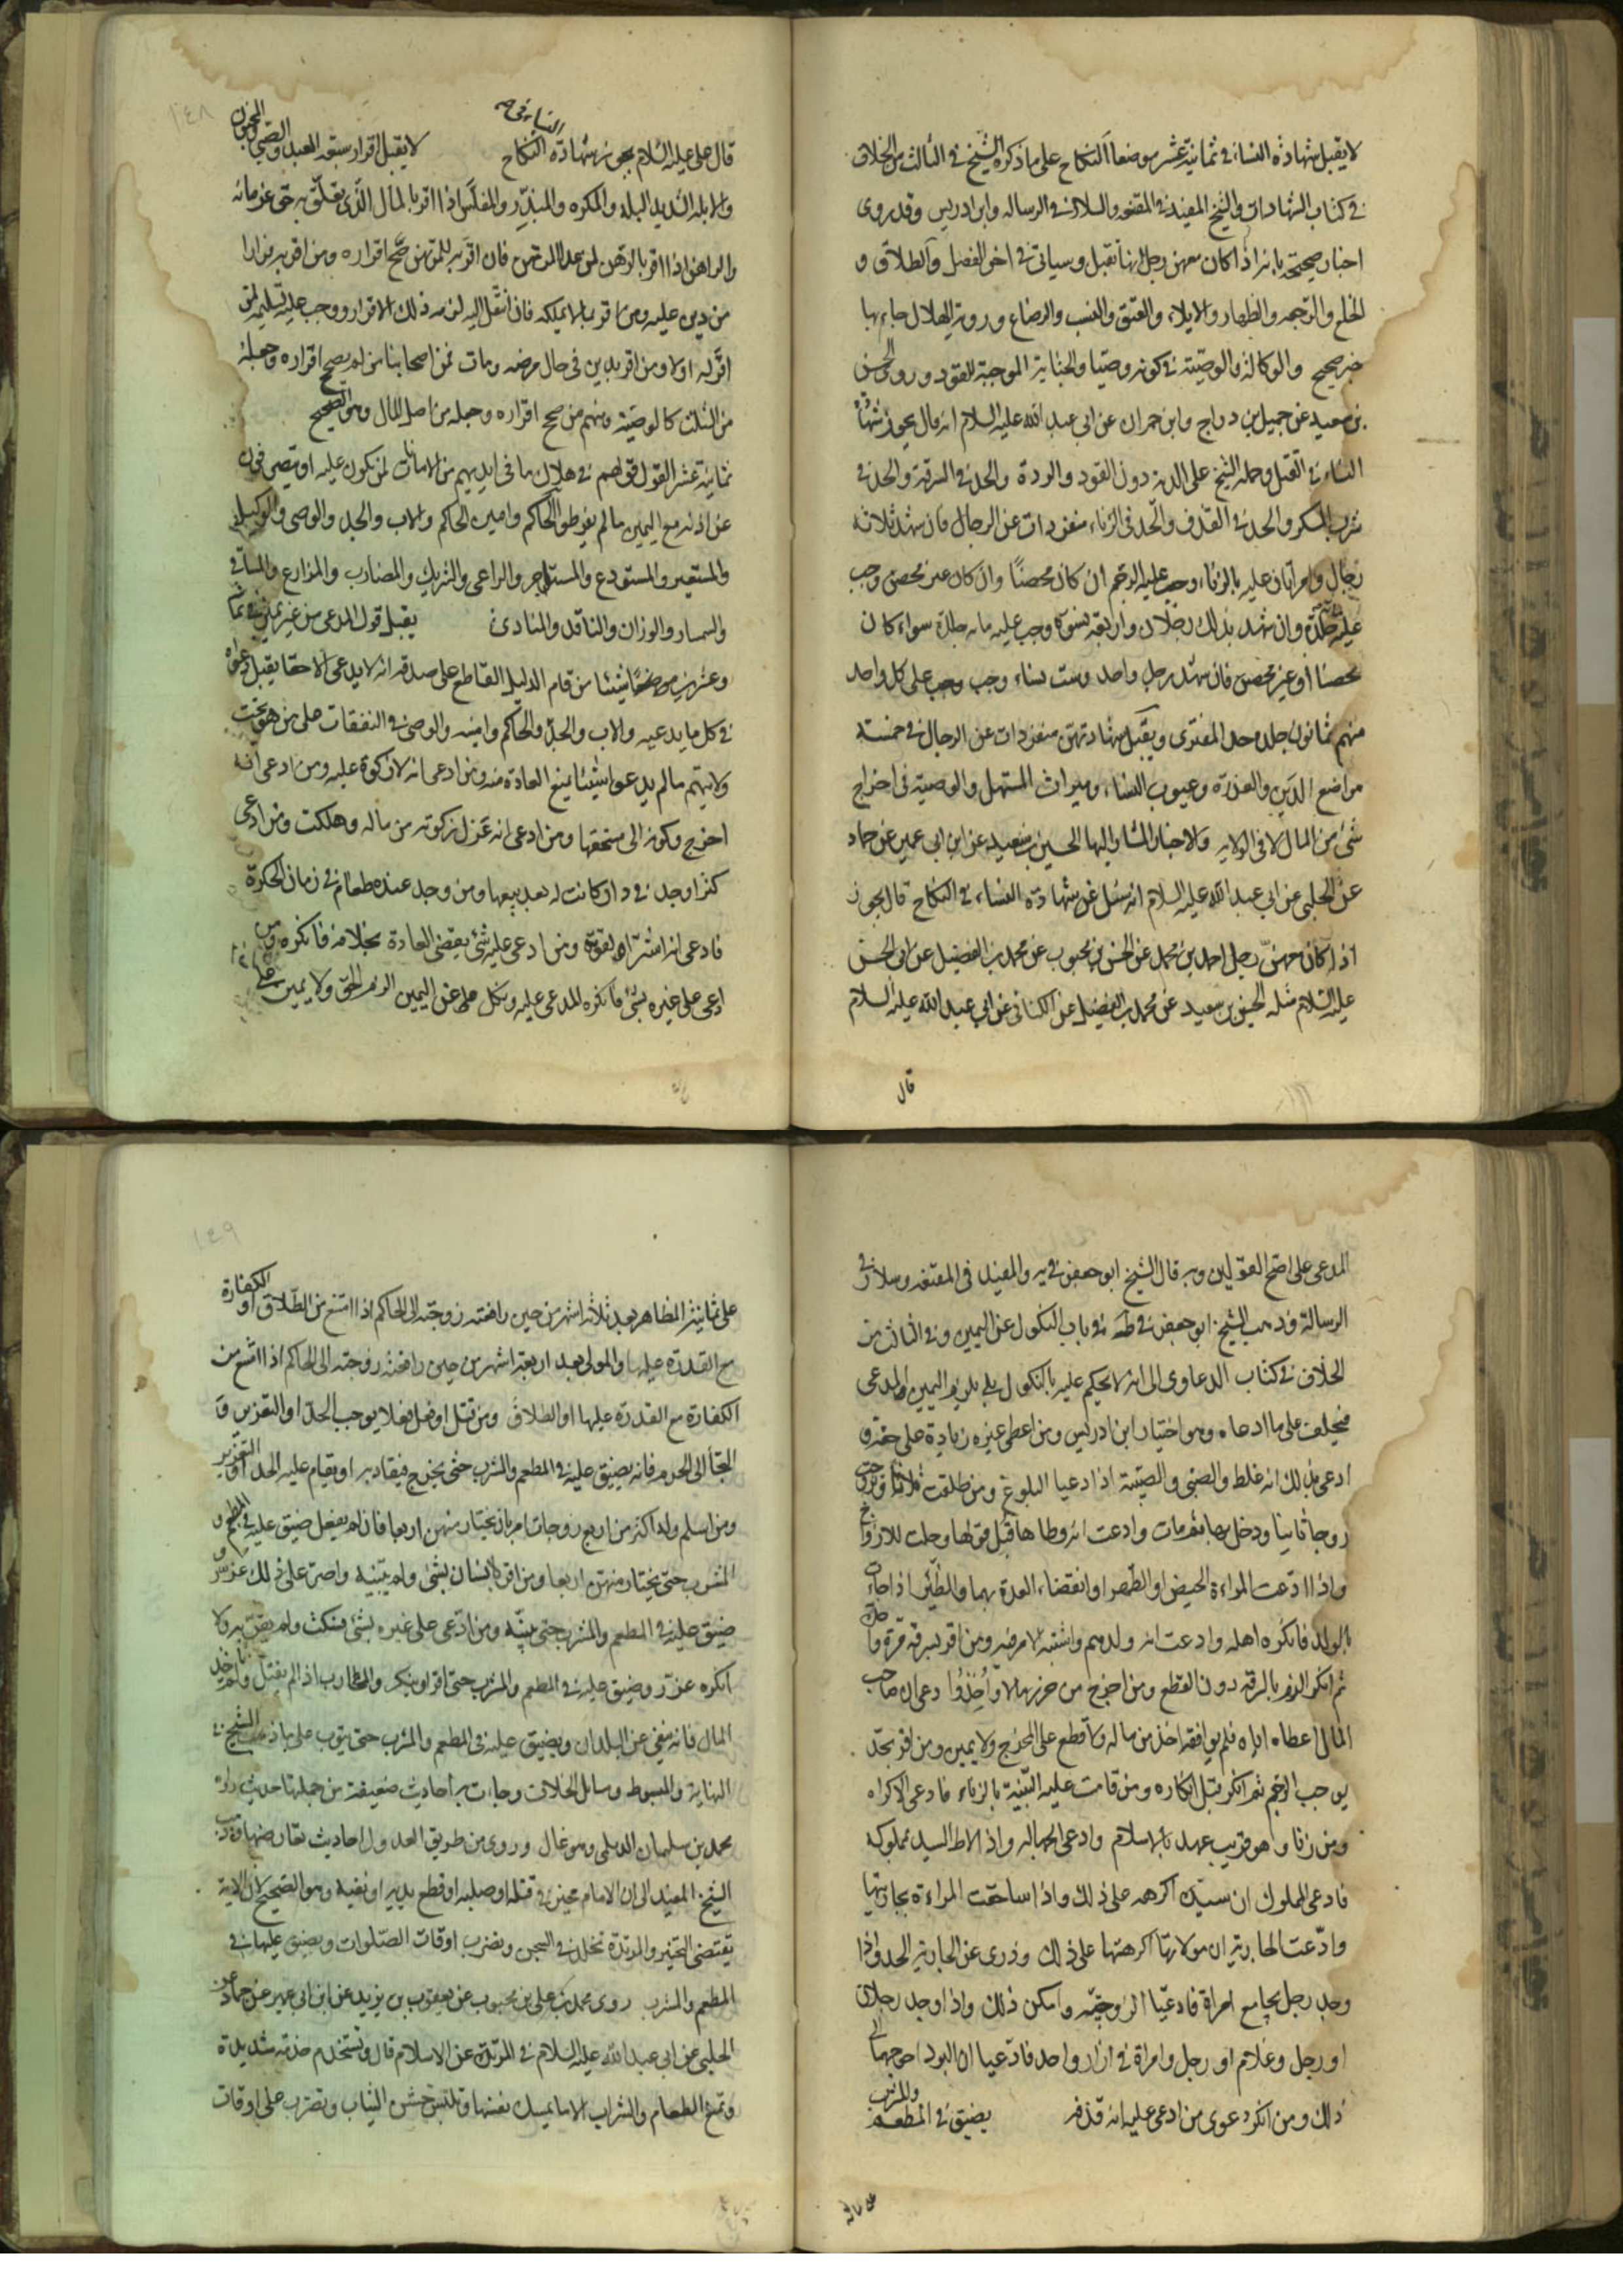 لا يقبل شهادة النساء في ثمانية عشر موضعا النكاح على ما ذكره الشيخ في الثالث من الخلاف
في كتاب الشهادات والشيخ المفيد في المقنعه والسلار في الرساله وابن ادريس وقد روى
اخبار صحيحة بانه اذا كان معهن رجل انها تقبل وسياتي في اخر الفصل والطلاق و
الخلع والرجعه والظهار والايلاء والعتق والنسب والرضاع وروية الهلال جاء بها
خبر صحيح والوكالة والوصية في كونه وصيا والجناية الموجبة للقود وروى الحسين
بن سعيد عن جميل بن دراج وابن حمران عن ابي عبد الله عليه السلام انه قال يجوز شهادة
النساء في القتل وحمله الشيخ على الدية دون القود والردة والحد في السرقة والحد في
شرب المسكر والحد في القذف والحد في الزناء منفردات عن الرجال فان شهد ثلاثة
رجال وامراتان عليه بالزناء وجب عليه الرجم ان كان محصنا وان كان غير محصن وجب
عليه جلدة وان شهد بذلك رجلان واربعة نسوة وجب عليه مائة جلدة سواء كان
محصنا او غير محصن فان شهد رجل واحد وست نساء وجب على كل واحد
منهم ثمانون جلدة حد المفترى ويقبل شهادتهن منفردات عن الرجال في خمسة
مواضع الدين والعذرة وعيوب النساء وميراث المستهل والوصية في اخراج
شئ من المال لا في الولاية والاخبار المشار اليها الحسين بن سعيد عن ابن ابي عمير عن حماد
عن الحلبي عن ابي عبد الله عليه السلام انه سئل عن شهادة النساء في النكاح قال يجوز
اذا كان معهن رجل احمد بن محمد عن الحسن بن محبوب عن محمد بن الفضيل عن ابي الحسن
عليه السلام مثله الحسين بن سعيد عن محمد بن الفضيل عن الكناني عن ابي عبد الله عليه السلام
قال
١٤٨
قال علي عليه السلام يجوز شهادة النساء في النكاح لا يقبل اقرار ستة العبد والصبي والمجنون
والابله الشديد البله والمكره والمبذر والمفلس اذا اقر بالمال الذي تعلق به حق غرمائه
والراهن اذا اقر بالرهن لمن عدا المرتهن فان اقر به للمرتهن صح اقراره ومن اقر به فرارا
من دين عليه ومن اقر بما لا يملكه فان انتقل اليه لزمه ذلك الاقرار ووجب عليه تسليمه لمن
اقر له اولا ومن اقر بدين في حال مرضه ومات فمن اصحابنا من لم يصحح اقراره وجعله
من الثلث كالوصية ومنهم من صحح اقراره وجعله من اصل المال وهو الصحيح
ثمانية عشر القول قولهم في هلاك ما في ايديهم من الامانات لمن يكون عليه او يتصرفون
عن اذنه مع اليمين ما لم يفرطوا الحاكم وامين الحاكم والاب والجد والوصي والوكيل
والمستعير والمستودع والمستاجر والراعي والشريك والمضارب والمزارع والمساقي
والسمسار والوزان والناقد والمنادى يقبل قول المدعى من غير يمين في ثمانية
وعشرين موضعا من قام الدليل القاطع على صدقه انه لا يدعى الا حقا يقبل دعواه
في كل ما يدعيه والاب والجد والحاكم وامينه والوصي في النفقات على من هو تحت
ولايتهم ما لم يدعوا شيئا يمنع العادة منه ومن ادعى انه لا زكوة عليه ومن ادعى انه
اخرج زكوته الى مستحقها ومن ادعى انه عزل زكوته من ماله وهلكت ومن ادعى
كنزا وجد في دار كانت له بعد بيعها ومن وجد عنده طعام في زمان الحكرة
فادعى انه اشتراه لقوته ومن ادعى عليه شئ يقضى العادة بخلافه فانكره ومن
ادعى على غيره بشئ فانكره المدعى عليه ونكل عن اليمين الزم الحق ولا يمين على
المدعى على اصح القولين وبه قال الشيخ ابو جعفر في يه والمفيد في المقنعه وسلار في
الرسالة وذهب الشيخ ابو جعفر في ط في باب النكول عن اليمين وفي الثالث من
الخلاف في كتاب الدعاوى الى انه لا يحكم عليه بالنكول بل يلزم اليمين المدعى
فيحلف على ما ادعاه وهو اختيار ابن ادريس ومن اعطى غيره زيادة على حقه و
ادعى بذلك انه غلط والصبي والصبية اذا ادعيا البلوغ ومن طلقت ثلاثا وتزوجت
زوجا ثانيا ودخل بها ثم مات وادعت انه وطاها قبل قولها وحلت للازواج
واذا ادعت المراءة الحيض او الطهر او انقضاء العدة بهما والظئر اذا جاءت
بالولد فانكره اهله وادعت انه ولدهم واشتبه الامر فيه ومن اقر بسرقة مرة واحدة
ثم انكر الزم بالسرقة دون القطع ومن اخرج من حرز مالا واخذ وادعى ان صاحب
المال اعطاه اياه فلم يوافقه اخذ من ماله ولا قطع على المخرج ولا يمين ومن اقر بحد
يوجب الرجم ثم انكر قبل انكاره ومن قامت عليه البينة بالزناء فادعى الاكراه
ومن زنا وهو قريب عهد بالاسلام وادعى الجهالة واذا لاط السيد بمملوكه
فادعى المملوك ان سيده اكرهه على ذلك واذا ساحقت المراءة بجاريتها
وادعت الجارية ان مولاتها اكرهتها على ذلك ودرى عن الجارية الحد واذا
وجد رجل يجامع امراة فادعيا الزوجية وامكن ذلك واذا وجد رجلان
او رجل وغلام او رجل وامراة في ازار واحد فادعيا ان البرد احوجهما الى
ذلك ومن انكر دعوى من ادعى عليه انه قذفه يضيق في المطعم والمشرب
١٤٩
على ثمانية المظاهر بعد ثلاثة اشهر من حين رافعته زوجته الى الحاكم اذا امتنع من الطلاق او الكفارة
مع القدرة عليها والمولى بعد اربعة اشهر من حين رافعته زوجته الى الحاكم اذا امتنع من
الكفارة مع القدرة عليها او الطلاق ومن قتل او فعل فعلا يوجب الحد او التعزير و
التجأ الى الحرم فانه يضيق عليه في المطعم والمشرب حتى يخرج فيقاد به او يقام عليه الحد او التعزير
ومن اسلم وله اكثر من اربع زوجات امر بان يختار منهن اربعا فان لم يفعل ضيق عليه في المطعم و
المشرب حتى يختار منهن اربعا ومن اقر لانسان بشئ ولم يبينه واصر على ذلك عزر و
ضيق عليه في المطعم والمشرب حتى يبينه ومن ادعى على غيره بشئ فسكت ولم يقر به ولا
انكره عزر وضيق عليه في المطعم والمشرب حتى اقر او ينكر والمحارب اذا لم يقتل ولم ياخذ
المال فانه ينفى عن البلدان ويضيق عليه في المطعم والمشرب حتى يتوب على ما ذهب الشيخ في
النهاية والمبسوط ومسائل الخلاف وجاءت به احاديث ضعيفة من جملتها حديث رواه
محمد بن سليمان الديلمي وهو غال وروى من طريق العدول احاديث تعارضها وذهب
الشيخ المفيد الى ان الامام مخير في قتله او صلبه او قطع يديه او نفيه وهو الصحيح لان الاية
يقتضى التخيير والمرتدة تخلد في السجن وتضرب اوقات الصلوات ويضيق عليها في
المطعم والمشرب روى محمد بن علي بن محبوب عن يعقوب بن يزيد عن ابن ابي عمير عن حماد عن
الحلبي عن ابي عبد الله عليه السلام في المرتدة عن الاسلام قال وتستخدم خدمة شديدة
وتمنع الطعام والشراب الا ما يمسك نفسها وتلبس خشن الثياب وتضرب على اوقات